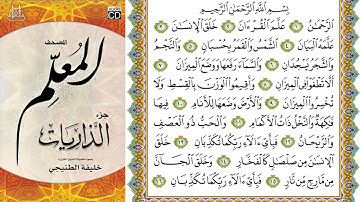 بِسْمِ اللَّهِ الرَّحْمَٰنِ الرَّحِيمِ
الرَّحْمَٰنُ ١ عَلَّمَ الْقُرْءَانَ ٢ خَلَقَ الْإِنسَٰنَ ٣
عَلَّمَهُ الْبَيَانَ ٤ الشَّمْسُ وَالْقَمَرُ بِحُسْبَانٍ ٥ وَالنَّجْمُ
وَالشَّجَرُ يَسْجُدَانِ ٦ وَالسَّمَآءَ رَفَعَهَا وَوَضَعَ الْمِيزَانَ ٧
أَلَّا تَطْغَوْا فِي الْمِيزَانِ ٨ وَأَقِيمُوا الْوَزْنَ بِالْقِسْطِ وَلَا
تُخْسِرُوا الْمِيزَانَ ٩ وَالْأَرْضَ وَضَعَهَا لِلْأَنَامِ ١٠ فِيهَا
فَٰكِهَةٌ وَالنَّخْلُ ذَاتُ الْأَكْمَامِ ١١ وَالْحَبُّ ذُو الْعَصْفِ
وَالرَّيْحَانُ ١٢ فَبِأَيِّ ءَالَآءِ رَبِّكُمَا تُكَذِّبَانِ ١٣ خَلَقَ
الْإِنسَٰنَ مِن صَلْصَٰلٍ كَالْفَخَّارِ ١٤ وَخَلَقَ الْجَآنَّ
مِن مَّارِجٍ مِّن نَّارٍ ١٥ فَبِأَيِّ ءَالَآءِ رَبِّكُمَا تُكَذِّبَانِ ١٦
CD
المصحف
المُعلِّم
جزء
الذاريات
خليفة الطنيجي